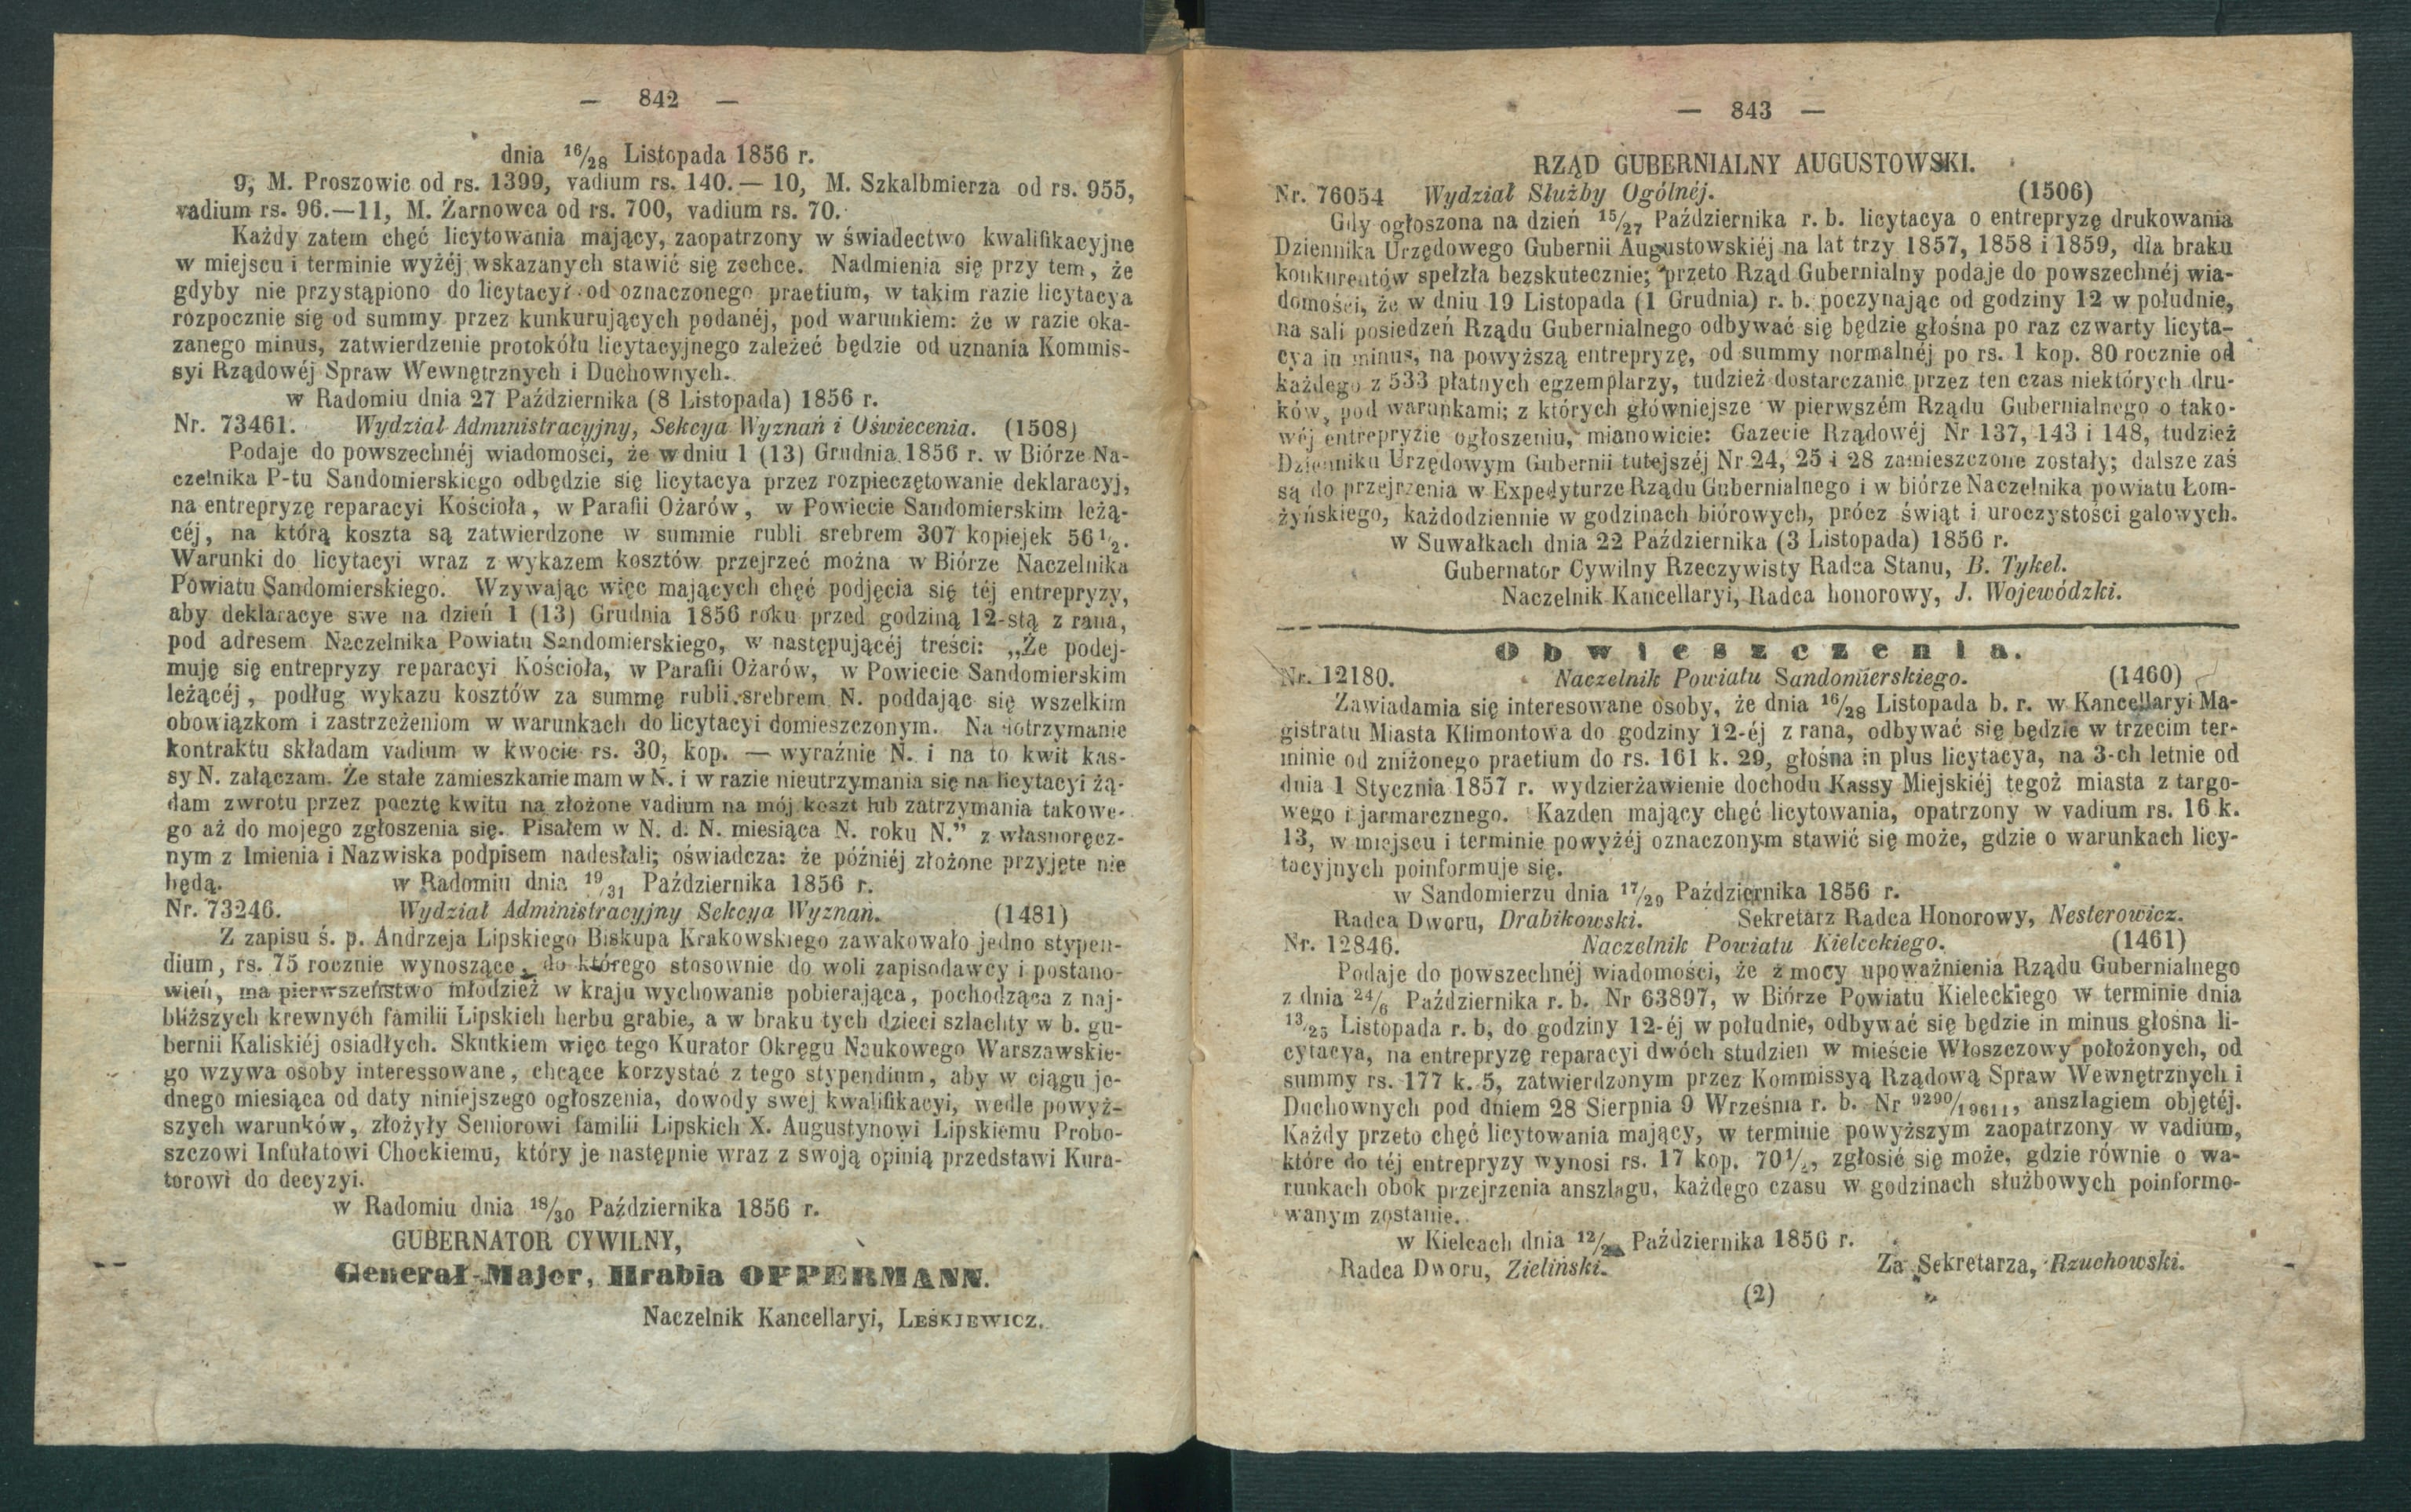 — 842 —
dnia 16/28 Listopada 1856 r.
9, M. Proszowic od rs. 1399, vadium rs. 140.— 10, M. Szkalbmierza od rs. 955,
vadium rs. 96.—11, M. Żarnowca od rs. 700, vadium rs. 70.
Każdy zatem chęć licytowania mający, zaopatrzony w świadectwo kwalifikacyjne
w miejscu i terminie wyżéj wskazanych stawić się zechce. Nadmienia się przy tem, że
gdyby nie przystąpiono do licytacyi od oznaczonego praetium, w takim razie licytacya
rozpocznie się od summy przez kunkurujących podanéj, pod warunkiem: że w razie oka-
zanego minus, zatwierdzenie protokółu licytacyjnego zależeć będzie od uznania Kommis-
syi Rządowéj Spraw Wewnętrznych i Duchownych.
w Radomiu dnia 27 Października (8 Listopada) 1856 r.
Nr. 73461. Wydział Administracyjny, Sekcya Wyznań i Oświecenia. (1508)
Podaje do powszechnéj wiadomości, że w dniu 1 (13) Grudnia 1856 r. w Biórze Na-
czelnika P-tu Sandomierskiego odbędzie się licytacya przez rozpieczętowanie deklaracyj,
na entrepryzę reparacyi Kościoła, w Parafii Ożarów, w Powiecie Sandomierskim leżą-
céj, na którą koszta są zatwierdzone w summie rubli srebrem 307 kopiejek 56 1/2.
Warunki do licytacyi wraz z wykazem kosztów przejrzeć można w Biórze Naczelnika
Powiatu Sandomierskiego. Wzywając więc mających chęć podjęcia się téj entrepryzy,
aby deklaracye swe na dzień 1 (13) Grudnia 1856 roku przed godziną 12-stą z rana,
pod adresem Naczelnika Powiatu Sandomierskiego, w następującéj treści: „Że podej-
muję się entrepryzy reparacyi Kościoła, w Parafii Ożarów, w Powiecie Sandomierskim
leżącéj, podług wykazu kosztów za summę rubli srebrem N. poddając się wszelkim
obowiązkom i zastrzeżeniom w warunkach do licytacyi domieszczonym. Na dotrzymanie
kontraktu składam vadium w kwocie rs. 30, kop. — wyraźnie N. i na to kwit kas-
sy N. załączam. Że stałe zamieszkanie mam w N. i w razie nieutrzymania się na licytacyi żą-
dam zwrotu przez pocztę kwitu na złożone vadium na mój koszt lub zatrzymania takowe-
go aż do mojego zgłoszenia się. Pisałem w N. d. N. miesiąca N. roku N.” z własnoręcz-
nym z Imienia i Nazwiska podpisem nadesłali; oświadcza: że późniéj złożone przyjęte nie
będą. w Radomiu dnia 19/31 Października 1856 r.
Nr. 73246. Wydział Administracyjny Sekcya Wyznań. (1481)
Z zapisu ś. p. Andrzeja Lipskiego Biskupa Krakowskiego zawakowało jedno stypen-
dium, rs. 75 rocznie wynoszące, do którego stosownie do woli zapisodawcy i postano-
wień, ma pierwszeństwo młodzież w kraju wychowanie pobierająca, pochodząca z naj-
bliższych krewnych familii Lipskich herbu grabie, a w braku tych dzieci szlachty w b. gu-
bernii Kaliskiéj osiadłych. Skutkiem więc tego Kurator Okręgu Naukowego Warszawskie-
go wzywa osoby interessowane, chcące korzystać z tego stypendium, aby w ciągu je-
dnego miesiąca od daty niniejszego ogłoszenia, dowody swéj kwalifikacyi, wedle powyż-
szych warunków, złożyły Seniorowi familii Lipskich X. Augustynowi Lipskiemu Probo-
szczowi Infułatowi Chockiemu, który je następnie wraz z swoją opinią przedstawi Kura-
torowi do decyzyi.
w Radomiu dnia 18/30 Października 1856 r.
GUBERNATOR CYWILNY,
Generał-Major, Hrabia OPPERMANN.
Naczelnik Kancellaryi, LEŚKIEWICZ.
— 843 —
RZĄD GUBERNIALNY AUGUSTOWSKI.
Nr. 76054 Wydział Służby Ogólnéj. (1506)
Gdy ogłoszona na dzień 15/27 Października r. b. licytacya o entrepryzę drukowania
Dziennika Urzędowego Gubernii Augustowskiéj na lat trzy 1857, 1858 i 1859, dla braku
konkurentów spełzła bezskutecznie; przeto Rząd Gubernialny podaje do powszechnéj wia-
domości, że w dniu 19 Listopada (1 Grudnia) r. b. poczynając od godziny 12 w południe,
na sali posiedzeń Rządu Gubernialnego odbywać się będzie głośna po raz czwarty licyta-
cya in minus, na powyższą entrepryzę, od summy normalnéj po rs. 1 kop. 80 rocznie od
każdego z 533 płatnych egzemplarzy, tudzież dostarczanie przez ten czas niektórych dru-
ków, pod warunkami; z których główniejsze w pierwszém Rządu Gubernialnego o tako-
wéj entrepryzie ogłoszeniu, mianowicie: Gazecie Rządowéj Nr 137, 143 i 148, tudzież
Dzienniku Urzędowym Gubernii tutejszéj Nr 24, 25 i 28 zamieszczone zostały; dalsze zaś
są do przejrzenia w Expedyturze Rządu Gubernialnego i w biórze Naczelnika powiatu Łom-
żyńskiego, każdodziennie w godzinach biórowych, prócz świąt i uroczystości galowych.
w Suwałkach dnia 22 Października (3 Listopada) 1856 r.
Gubernator Cywilny Rzeczywisty Radca Stanu, B. Tykel.
Naczelnik Kancellaryi, Radca honorowy, J. Wojewódzki.
Obwieszczenia.
Nr. 12180. Naczelnik Powiatu Sandomierskiego. (1460)
Zawiadamia się interesowane osoby, że dnia 16/28 Listopada b. r. w Kancellaryi Ma-
gistratu Miasta Klimontowa do godziny 12-éj z rana, odbywać się będzie w trzecim ter-
minie od zniżonego praetium do rs. 161 k. 29, głośna in plus licytacya, na 3-ch letnie od
dnia 1 Stycznia 1857 r. wydzierżawienie dochodu Kassy Miejskiéj tegoż miasta z targo-
wego i jarmarcznego. Kazden mający chęć licytowania, opatrzony w vadium rs. 16 k.
13, w miejscu i terminie powyżéj oznaczonym stawić się może, gdzie o warunkach licy-
tacyjnych poinformuje się.
w Sandomierzu dnia 17/29 Października 1856 r.
Radca Dworu, Drabikowski. Sekretarz Radca Honorowy, Nesterowicz.
Nr. 12846. Naczelnik Powiatu Kieleckiego. (1461)
Podaje do powszechnéj wiadomości, że z mocy upoważnienia Rządu Gubernialnego
z dnia 24/6 Października r. b. Nr 63897, w Biórze Powiatu Kieleckiego w terminie dnia
13/25 Listopada r. b, do godziny 12-éj w południe, odbywać się będzie in minus głośna li-
cytacya, na entrepryzę reparacyi dwóch studzien w mieście Włoszczowy położonych, od
summy rs. 177 k. 5, zatwierdzonym przez Kommissyą Rządową Spraw Wewnętrznych i
Duchownych pod dniem 28 Sierpnia 9 Września r. b. Nr 9290/19611, anszlagiem objętéj.
Każdy przeto chęć licytowania mający, w terminie powyższym zaopatrzony w vadium,
które do téj entrepryzy wynosi rs. 17 kop. 70 1/2, zgłosić się może, gdzie równie o wa-
runkach obok przejrzenia anszlagu, każdego czasu w godzinach służbowych poinformo-
wanym zostanie.
w Kielcach dnia Października 1856 r.
Radca Dworu, Zieliński. Za Sekretarza, Rzuchowski.
(2)